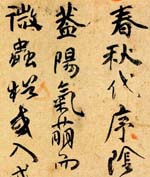 春秋代序陰
蓋陽氣萌而
微蟲猶或入